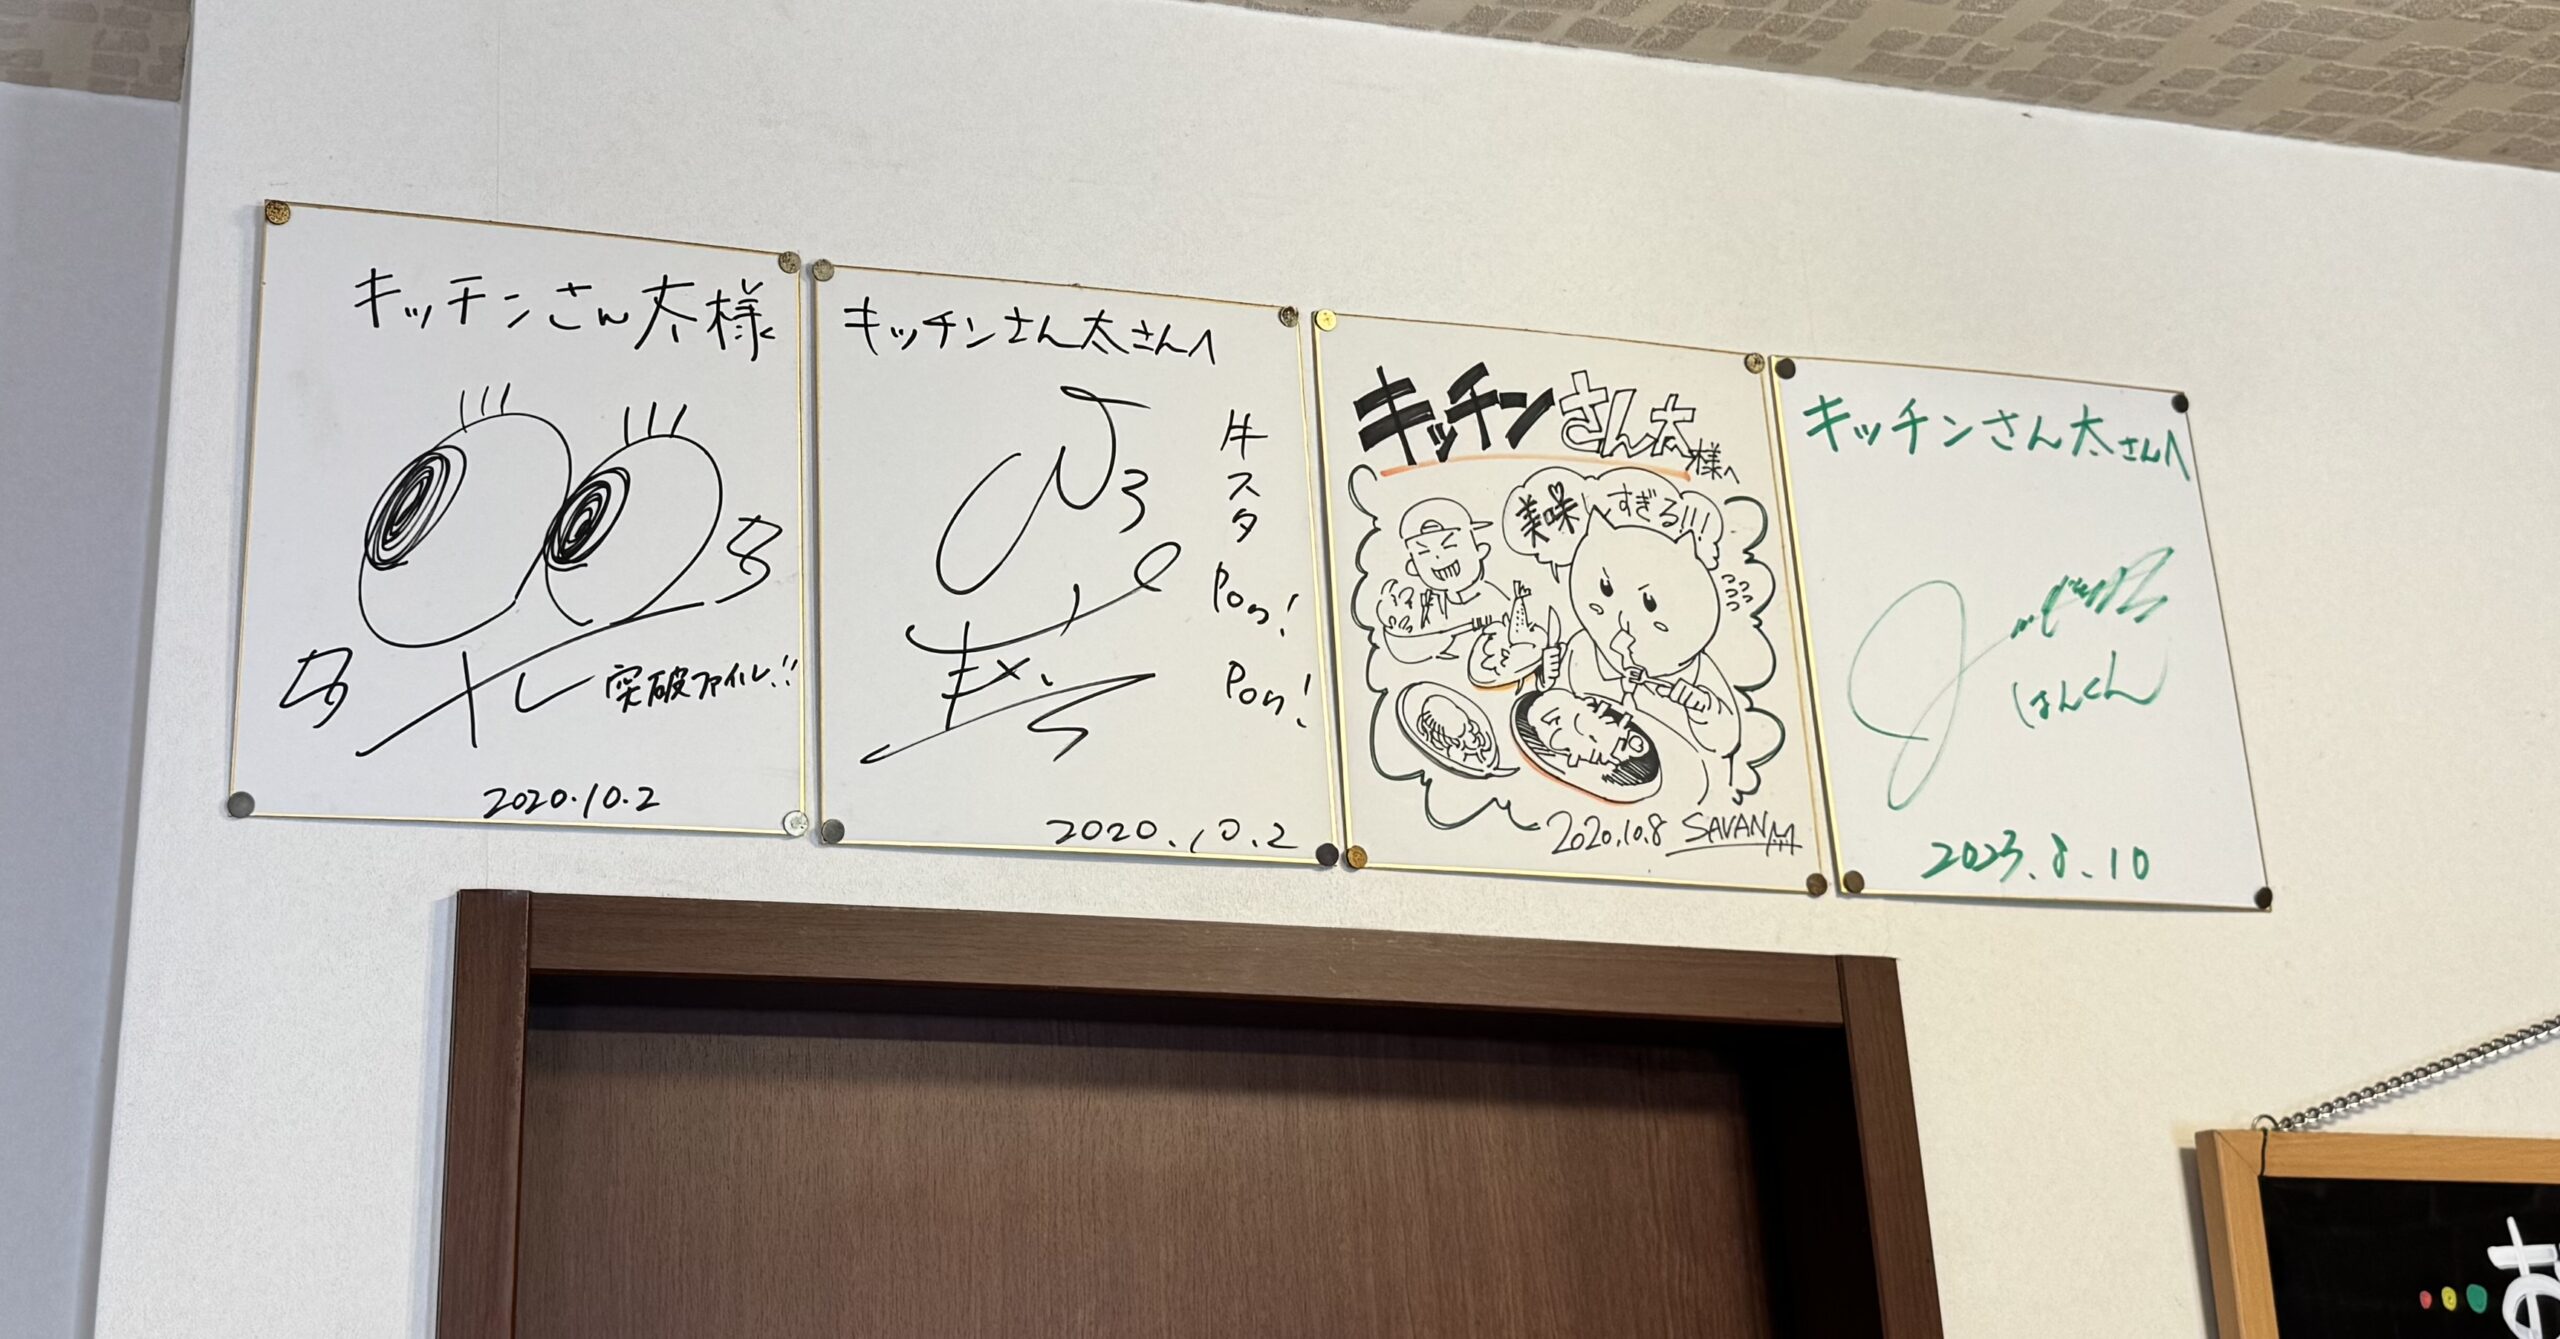 キッチンさん太様
突破ファイル!!
2020.10.2
キッチンさん太さんへ
牛スタ
Pon!
Pon!
2020.10.2
キッチンさん太様へ
美味しすぎる!!!
2020.10.8 SAVAN
キッチンさん太さんへ
はんくん
2023.8.10
お